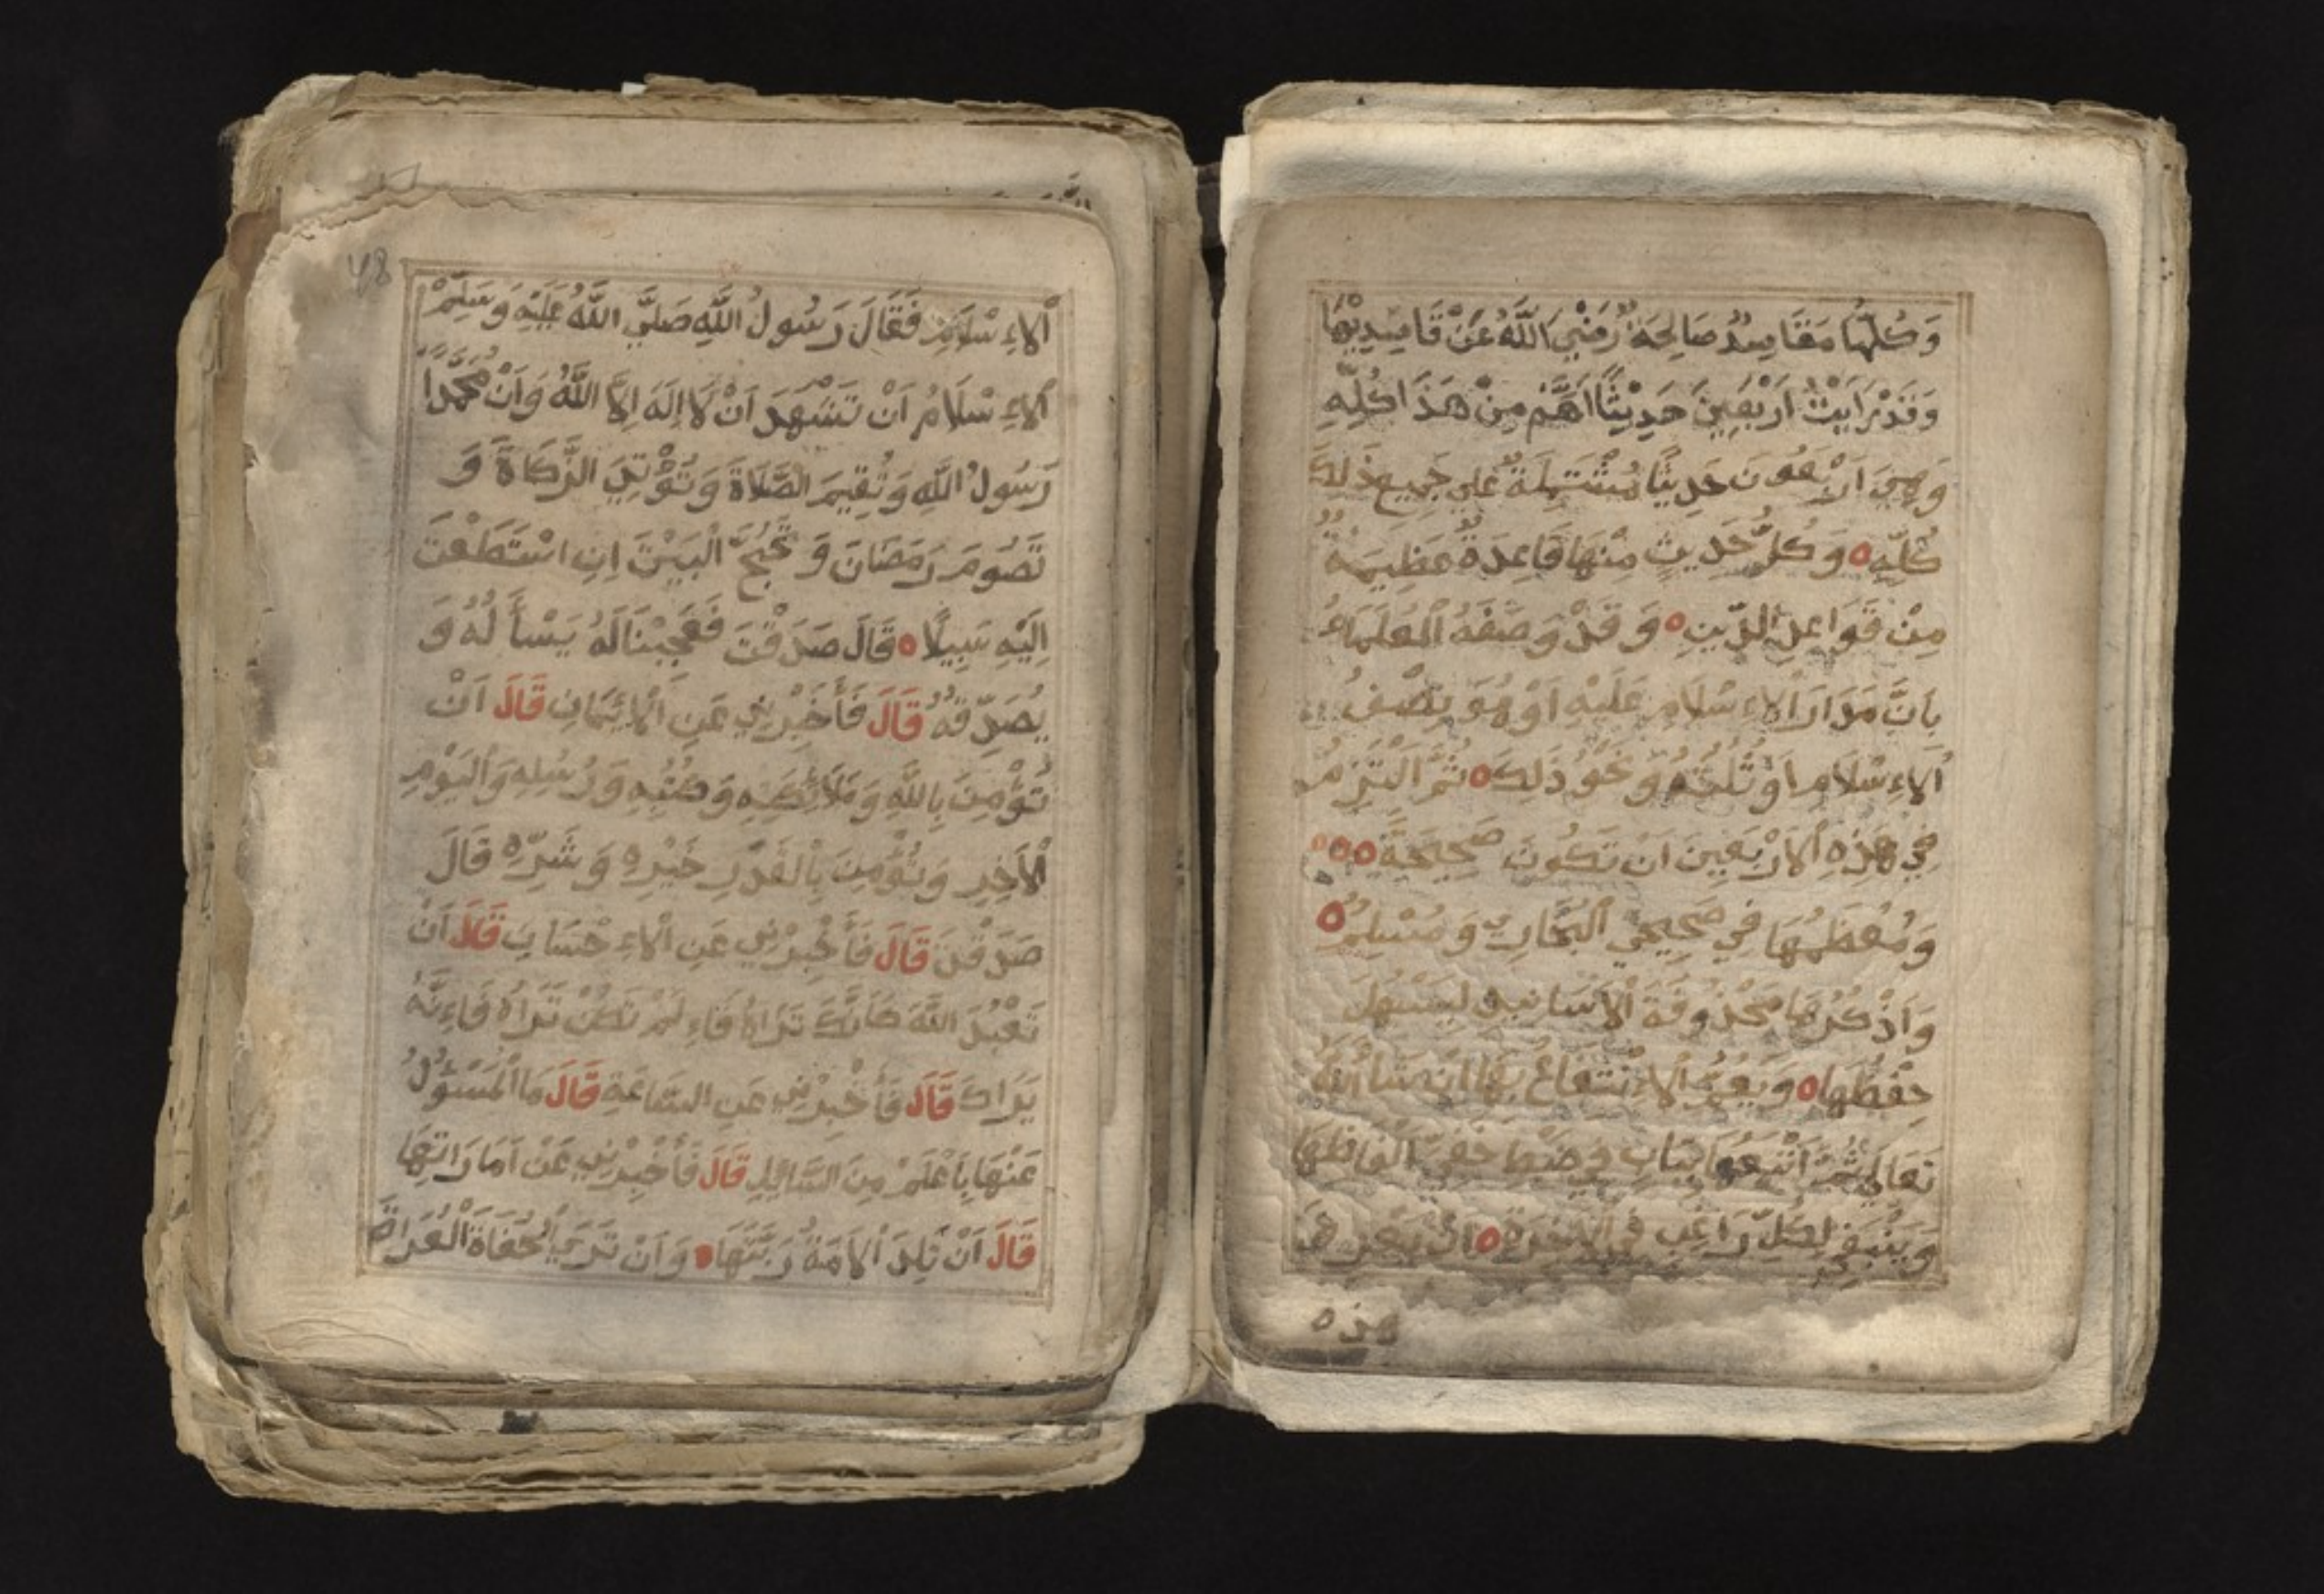 وَكُلُّهَا مَقَاصِدُ صَالِحَةٌ رَضِيَ اللَّهُ عَنْ قَاصِدِيْهَا
وَقَدْ رَاَيْتُ اَرْبَعِيْنَ حَدِيْثًا اَهَمَّ مِنْ هَذَا كُلِّهِ
وَهِيَ اَرْبَعُونَ حَدِيْثًا مُشْتَمِلَةٌ عَلَي جَمِيعِ ذَلِكَ
كُلِّهِ وَكُلُّ حَدِيثٍ مِنْهَا قَاعِدَةٌ عَظِيمَةٌ
مِنْ قَوَاعِدِ الدِّينِ وَقَدْ وَصَفَهُ الْعُلَمَاءُ
بِاَنَّ مَدَارَ الْاِءسْلَامِ عَلَيْهِ اَوْ هُوَ نِصْفُ
الْاِءسْلَامِ اَوْ ثُلُثُهُ وَنَحْوُ ذَلِكَ ثُمَّ اَلْتَزِمُ
فِي هَذِهِ الْاَرْبَعِينَ اَنْ تَكُونَ صَحِيحَةً
وَمُعْظَمُهَا فِي صَحِيحَيْ الْبُخَارِي وَمُسْلِمٌ
وَاَذْكُرُهَا مَحْذُوفَةَ الْاَسَانِيدِ لِيَسْهُلَ
حِفْظُهَا وَيَعُمَّ الْاِءنْتِفَاعُ بِهَا اِنْ شَاءَ اللَّهُ
تَعَالَي ثُمَّ اُتْبِعُهَا بِبَابٍ فِي ضَبْطِ خَفِيِّ اَلْفَاظِهَا
وَيَنْبَغِي لِكُلِّ رَاغِبٍ فِي الْاَخِرَةِ اَنْ يَعْرِفَ
هذه
48
اَلْاِءسْلَامِ فَقَالَ رَسُولُ اللَّهِ صَلَّي اللَّهُ عَلَيْهِ وَسَلَّمْ
اَلْاِءسْلَامُ اَنْ تَشْهَدَ اَنْ لَا اِلَهَ اِلَّا اللَّهُ وَاَنْ مُحَمَّدًا
رَسُولُ اللَّهِ وَتُقِيمَ الصَّلَاةَ وَتُؤْتِيَ الزَّكَاةَ وَ
تَصُومَ رَمَضَانَ وَتَحُجَّ الْبَيْتَ اِنِ اسْتَطَعْتَ
اِلَيْهِ سَبِيلًا قَالَ صَدَقْتَ فَعَجِبْنَا لَهُ يَسْأَلُهُ وَ
يُصَدِّقُهُ قَالَ فَأَخْبِرْنِي عَنِ الْاِئيمَانِ قَالَ اَنْ
تُؤْمِنَ بِاللَّهِ وَمَلَائِكَتِهِ وَكُتُبِهِ وَرُسُلِهِ وَالْيَوْمِ
الْاَخِرِ وَتُؤْمِنَ بِالْقَدَرِ خَيْرِهِ وَشَرِّهِ قَالَ
صَدَقْتَ قَالَ فَأَخْبِرْنِي عَنِ الْاِءحْسَانِ قَالَ اَنْ
تَعْبُدَ اللَّهَ كَاَنَّكَ تَرَاهُ فَاِءلَمْ تَكُنْ تَرَاهُ فَاِءنَّهُ
يَرَاكَ قَالَ فَأَخْبِرْنِي عَنِ السَّاعَةِ قَالَ مَا الْمَسْؤُلُ
عَنْهَا بِاَعْلَمْ مِنَ السَّائِلِ قَالَ فَأَخْبِرْنِي عَنْ اَمَارَاتِهَا
قَالَ اَنْ تَلِدَ الْاَمَةُ رَبَّتَهَا وَاَنْ تَرَيَ الْحُفَاةَ الْعُرَاةَ